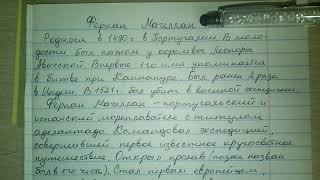 Фернан Магеллан
Родился в 1480г в Португалии. В моло-
дости был пажом у королевы Леоноры
Ависской. Впервые его имя упоминается
в битве при Каннануре. Был ранен 2 раза
в Индии. В 1521г. был убит в военной экспедиции.
Фернан Магеллан – португальский и
испанский мореплаватель с титулом
аделантадо. Командовал экспедицией,
совершившей первое известное кругосветное
путешествие. Открыл пролив (позже назван
был в его честь). Стал первым европейцем,